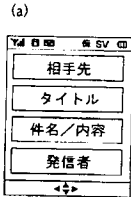 (a)
SV
相手先
タイトル
件名/内容
発信者